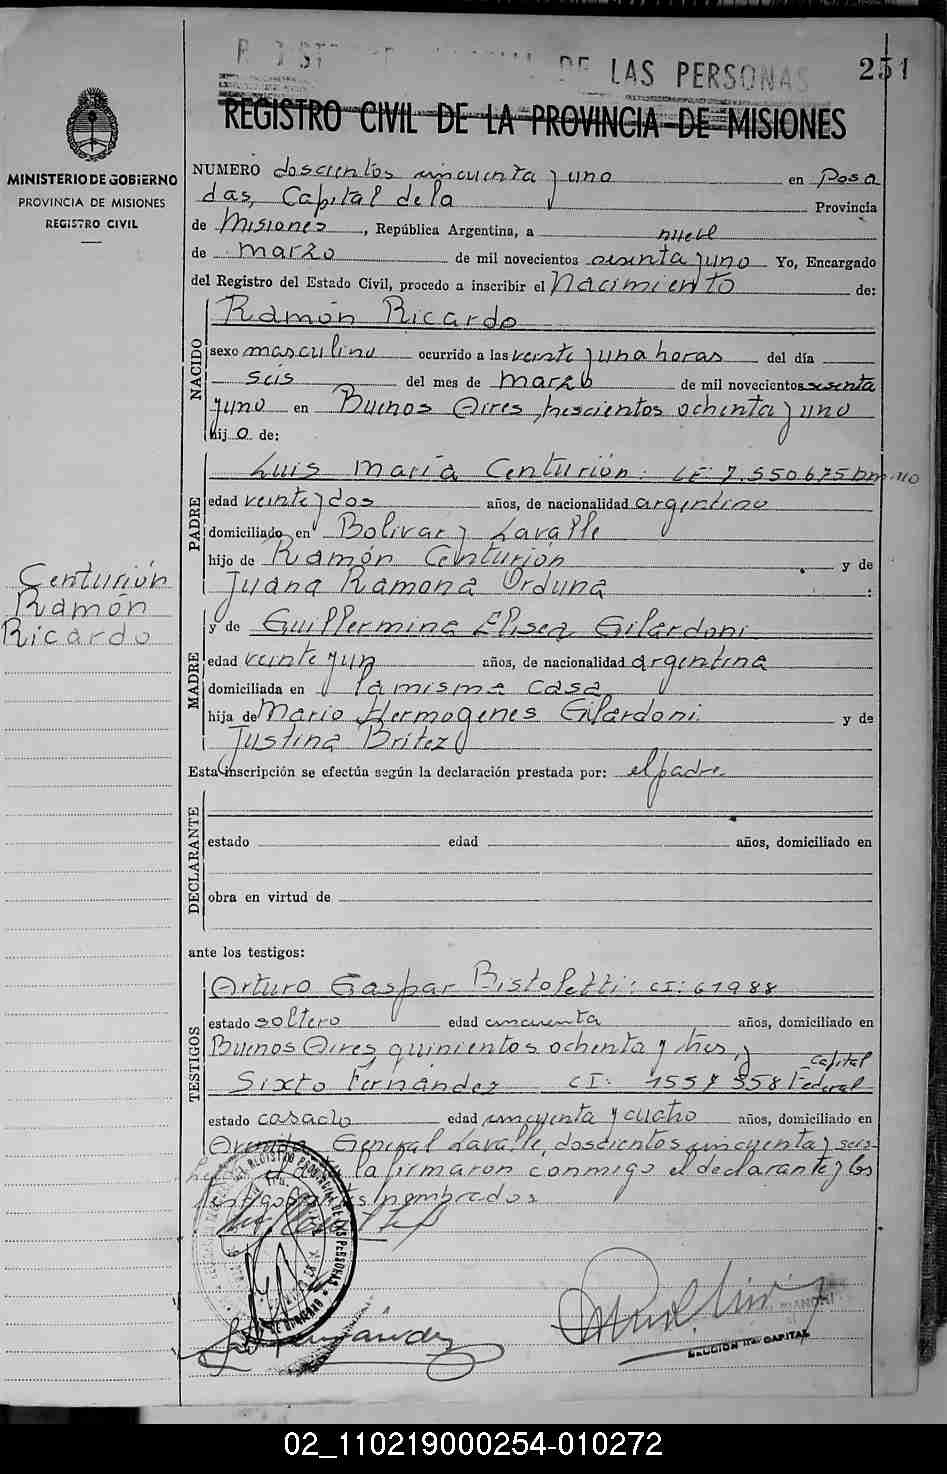 DE LAS PERSONAS
251
REGISTRO CIVIL DE LA PROVINCIA DE MISIONES
MINISTERIO DE GOBIERNO
PROVINCIA DE MISIONES
REGISTRO CIVIL
NUMERO doscientos cincuenta y uno en Posa
das, Capital de la Provincia
de Misiones, República Argentina, a nueve
de marzo de mil novecientos sesenta y uno Yo, Encargado
del Registro del Estado Civil, procedo a inscribir el Nacimiento de:
NACIDO
Ramón Ricardo
sexo masculino ocurrido a las veinte y una horas del día
seis del mes de marzo de mil novecientos sesenta
y uno en Buenos Aires, trescientos ochenta y uno
hij o de:
PADRE
Luis María Centurión. LE: 7.550675
edad veinte y dos años, de nacionalidad argentino
domiciliado en Bolivar y Lavalle
hijo de Ramón Centurión y de
Juana Ramona Orduna
Centurión
Ramón
Ricardo
MADRE
y de Guillermina Elisea Gilardoni
edad veinte y un años, de nacionalidad argentina
domiciliada en la misma casa
hija de Mario Hermogenes Gilardoni y de
Justina Britez
Esta inscripción se efectúa según la declaración prestada por: el padre
DECLARANTE
estado edad años, domiciliado en
obra en virtud de
ante los testigos:
TESTIGOS
Arturo Gaspar Bistoletti: CI: 61988
estado soltero edad cincuenta años, domiciliado en
Buenos Aires, quinientos ochenta y tres, y
Sixto Fernández CI: Capital Federal
estado casado edad cincuenta y cuatro años, domiciliado en
Avenida General Lavalle, doscientos cincuenta y seis-
la firmaron conmigo el declarante y los
testigos nombrados
Fernández
SECCION CAPITAL
02_110219000254-010272